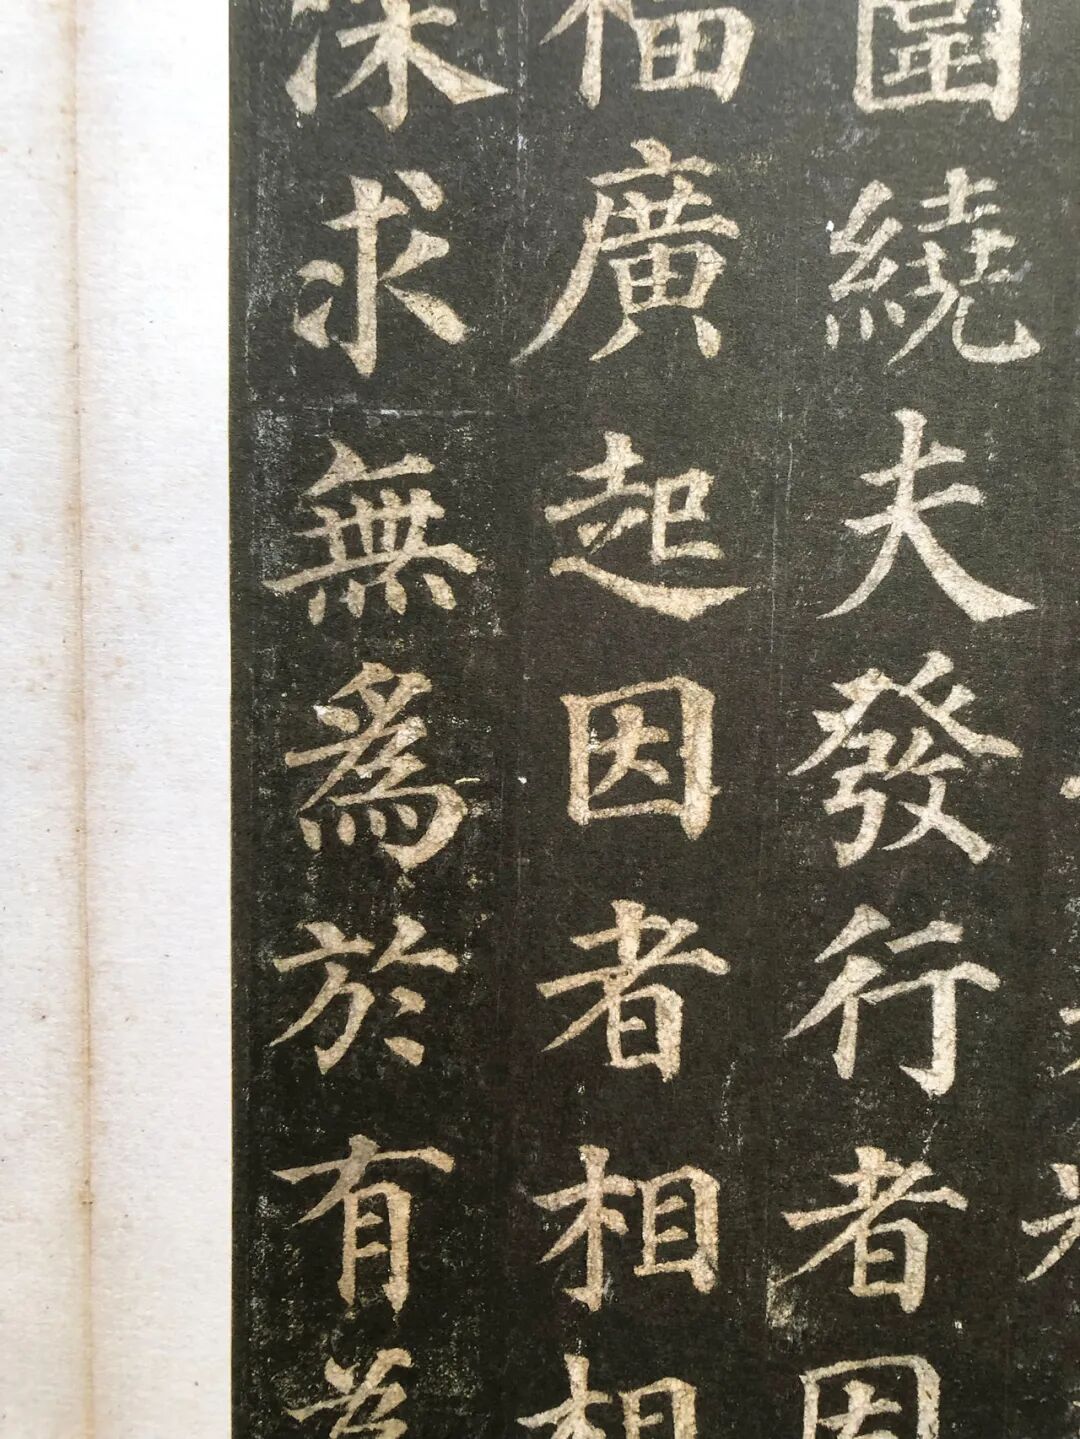 圍繞夫發行者因
福廣起因者相相
深求無為於有為